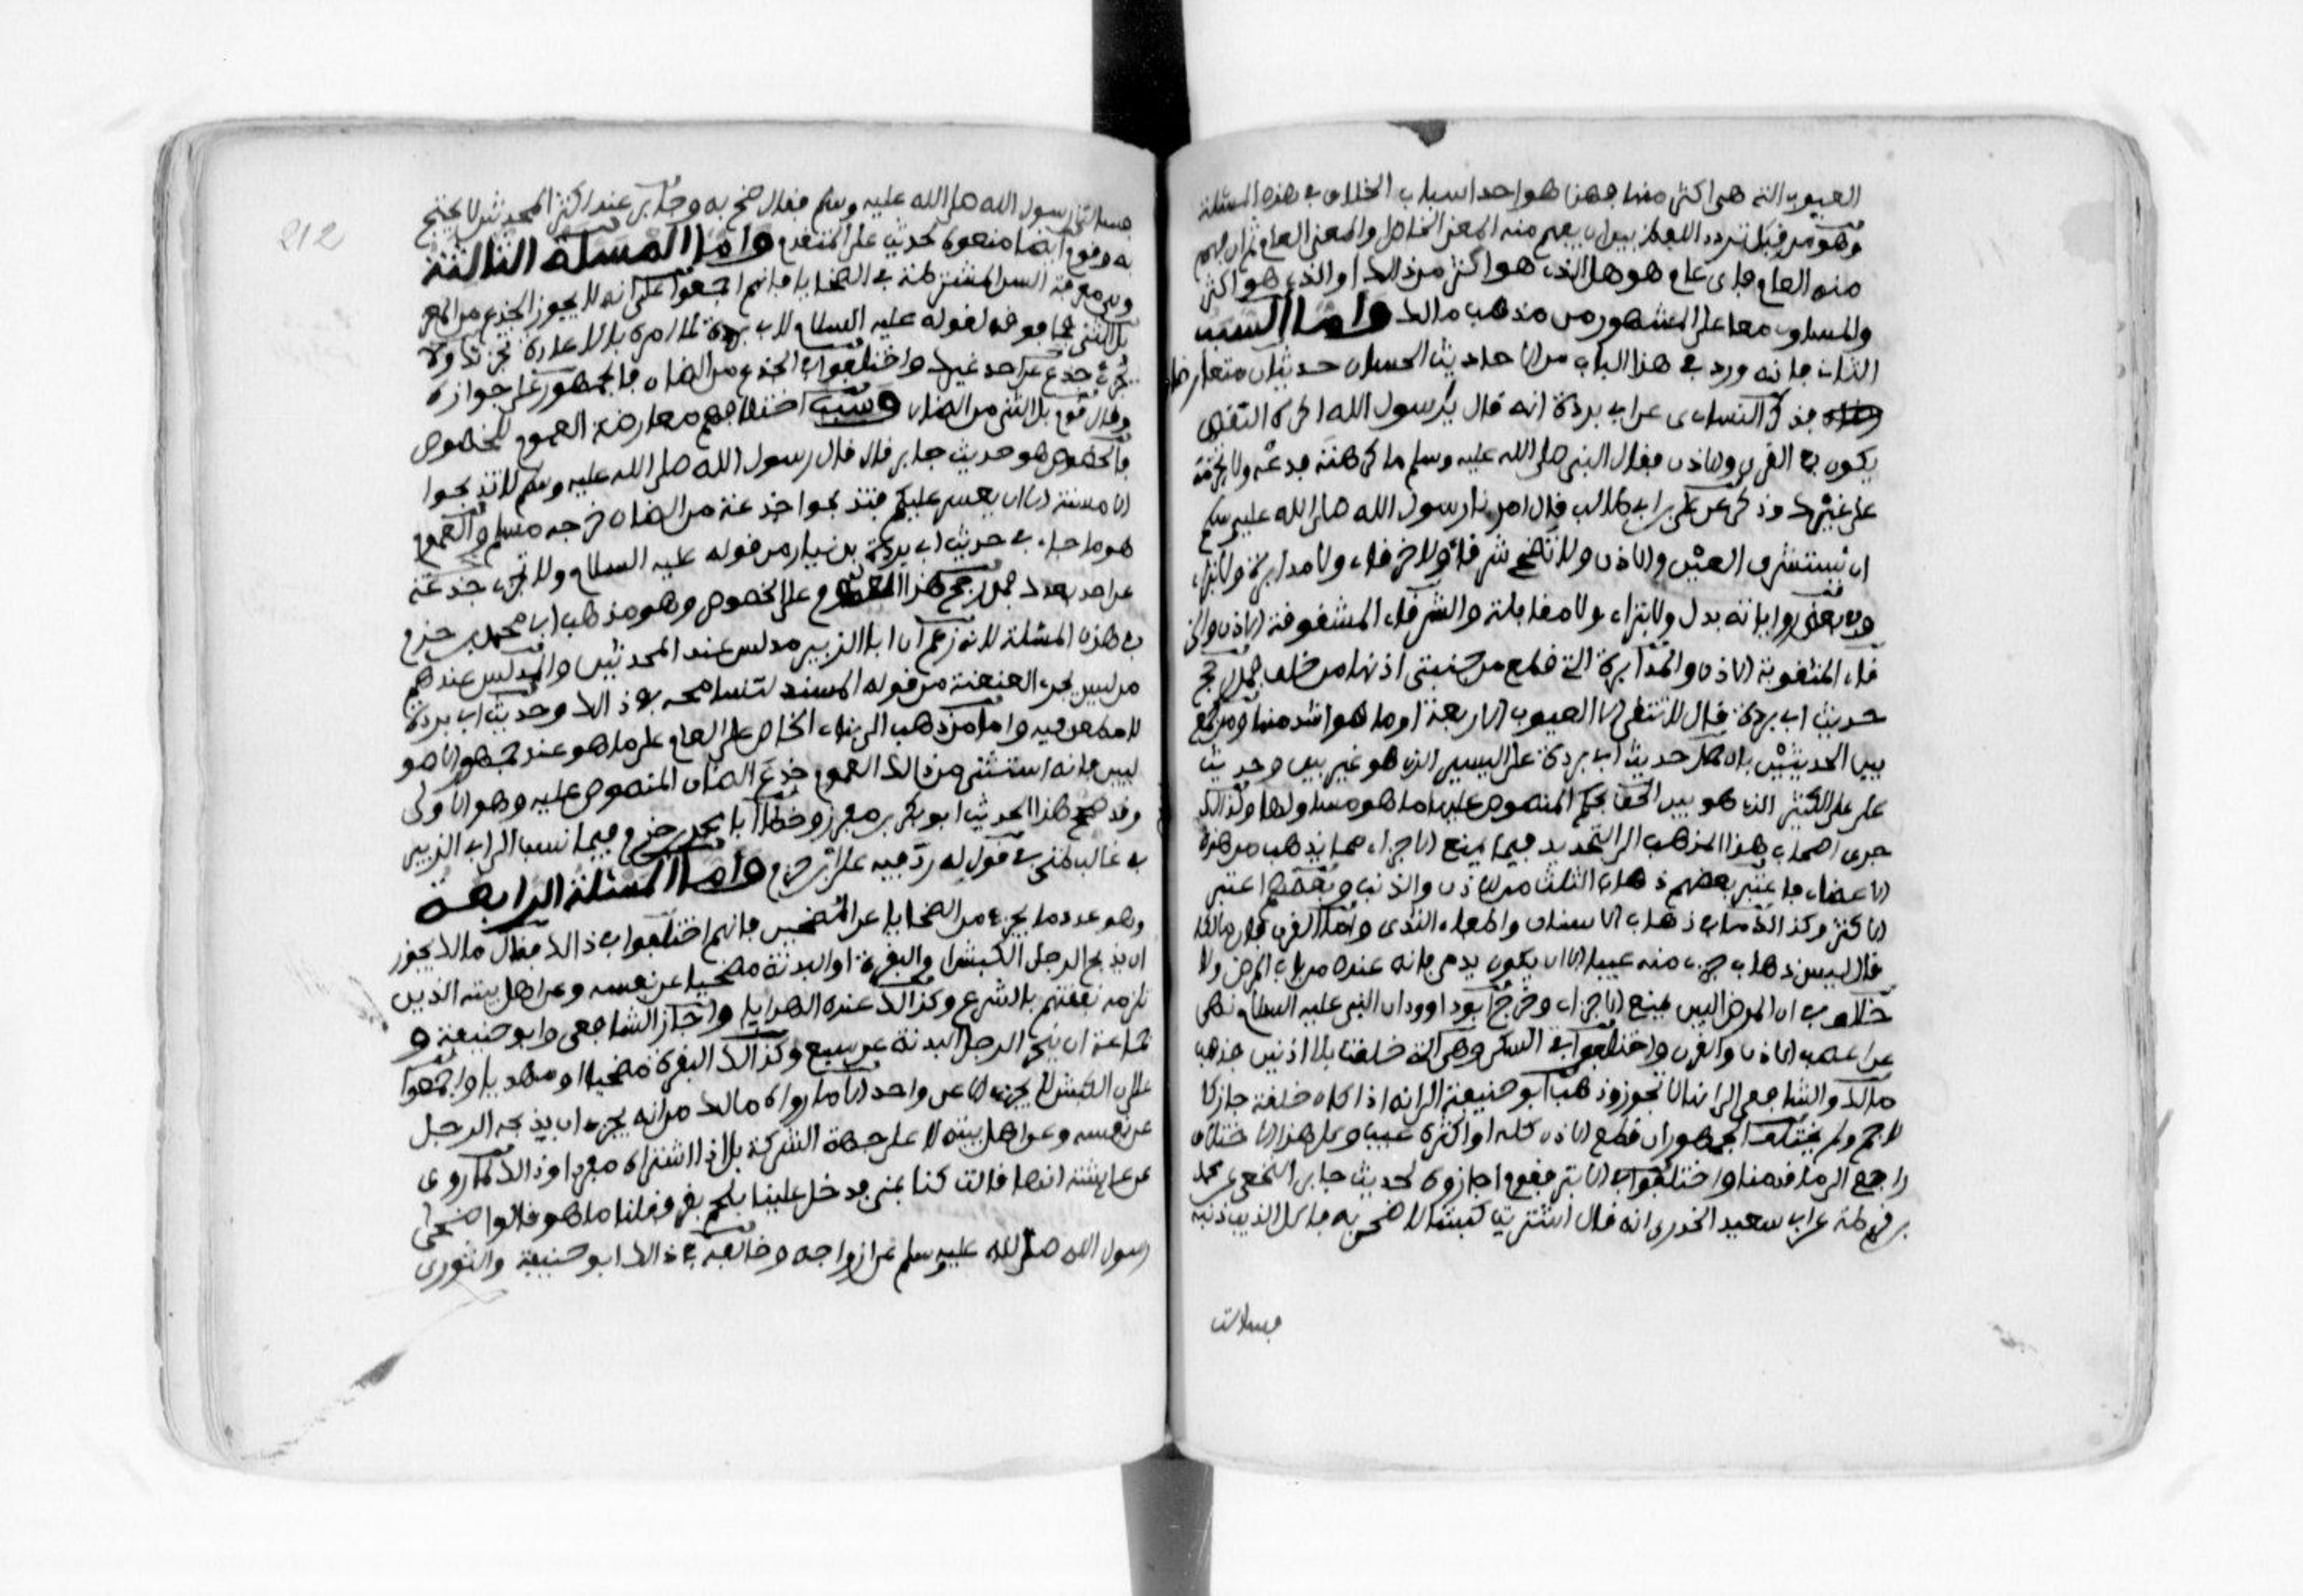 العيوب التي هي اكثر منها فهذا هو احد اسباب الخلاف في هذه المسئلة
وهو من قبل تردد اللفظ بين ان يفهم منه المعنى الخاص والمعنى العام ثم ان فهم
منه العام فاى عام هو هل الذى هو اكثر من ذالك او الذى هو اكثر
والمساوى معا على المشهور من مذهب مالك واما السبب
الثانى فانه ورد في هذا الباب من الاحاديث الحسان حديثان متعارضان
فذكر النساءى عن ابى بردة انه قال يرسول الله اكره النقص
يكون في القرن والاذن فقال النبى صلى الله عليه وسلم ما كرهته فدعه ولا تحرمه
على غيرك وذكر عن على بن ابى طالب قال امرنا رسول الله صلى الله عليه وسلم
ان نستشرف العين والاذن ولا نضحى بشرقاء ولا خرقاء ولا مدابرة ولا بتراء
وفى بعض رواياته بدل ولا بتراء ولا مقابلة والشرقاء المشقوقة الاذن والخر
قاء المثقوبة الاذن والمدابرة التى قطع من جنبتى اذنها من خلف فمن رجح
حديث ابى بردة قال لا تتقى الا العيوب الاربعة او ما هو اشد منها ومن جمع
بين الحديثين بان حمل حديث ابى بردة على اليسير الذى هو غير بين وحديث
على على الكثير الذى هو بين الحق بحكم المنصوص عليها ما هو مساو لها ولذالك
جرى اصحاب هذا المذهب الى التحديد فيما يمنع الاجزاء مما يذهب من هذه
الاعضاء فاعتبر بعضهم ذهاب الثلث من الاذن والذنب وبعضهم اعتبر
الاكثر وكذالك فى ذهاب الاسنان واطباء الثدى واما القرن فان مالكا
قال ليس ذهاب جزء منه عيبا الا ان يكون يدمى فانه عنده من باب المرض ولا
خلاف في ان المرض البين يمنع الاجزاء وخرج ابود اوود ان النبى عليه السلام نهى
عن اعضب الاذن والقرن واختلفوا في السكاء وهى التى خلقت بلا اذنين فذهب
مالك والشافعى الى انها لا تجوز وذهب ابو حنيفة الى انه اذا كان خلقة جاز كا
لاجم ولم يختلف الجمهور ان قطع الاذن كله او اكثره عيب وكل هذا الاختلاف
راجع الى ما قدمنا واختلفوا في الابتر فقوم اجازوه لحديث جابر الجعفى عن محمد
بن قرظة عن ابى سعيد الخدرى انه قال اشتريت كبشا لاضحى به فاكل الذيب ذنبه
فسالت
212
فسالت رسول الله صلى الله عليه وسلم فقال ضح به وجابر عند اكثر المحدثين لا يحتج
به وقوم ايضا منعوه لحديث على المتقدم واما المسئلة الثالثة
وهى معرفة السن المشترطة في الضحايا فانهم اجمعوا على انه لا يجوز الجذع من المعز
بل الثنى فما فوقه لقوله عليه السلام لابى بردة لما امره بالاعادة تجزئك ولا
تجزئ جذع عن احد غيرك واختلفوا في الجذع من الضان فالجمهور على جوازه
وقال قوم بل الثنى من الضان وسبب اختلافهم معارضة العموم للخصوص
فالخصوص هو حديث جابر قال قال رسول الله صلى الله عليه وسلم لا تذبحوا
الا مسنة الا ان يعسر عليكم فتذبحوا جذعة من الضان خرجه مسلم والعموم
هو ما جاء في حديث ابى بردة بن نيار من قوله عليه السلام ولا تجزى جذعة
عن احد بعدك فمن رجح هذا العموم على الخصوص وهو مذهب ابى محمد بن حزم
في هذه المسئلة لانه زعم ان ابا الزبير مدلس عند المحدثين والمدلس عندهم
من ليس يجرى العنعنة من قوله المسند لتسامحه في ذالك وحديث ابى بردة
لا مطعن فيه واما من ذهب الى بناء الخاص على العام على ما هو عند جمهور الاصو
ليين فانه استثنى من ذالك العموم جذع الضان المنصوص عليه وهو الاولى
وقد صحح هذا الحديث ابو بكر بن صفور وخطا ابا محمد بن حزم فيما نسب الى ابى الزبير
في غالب ظنى في قول له رد فيه على ابن حزم واما المسئلة الرابعة
وهو عدد ما يجزء من الضحايا عن المضحين فانهم اختلفوا في ذالك فقال مالك يجوز
ان يذبح الرجل الكبش او البقرة او البدنة مضحيا عن نفسه وعن اهل بيته الذين
تلزمه نفقتهم بالشرع وكذالك عنده الهدايا واجاز الشافعى وابو حنيفة و
جماعة ان ينحر الرجل البدنة عن سبع وكذالك البقرة مضحيا او مهديا واجمعوا
على ان الكبش لا يجزء الا عن واحد الا ما رواه مالك من انه يجزء ان يذبحه الرجل
عن نفسه وعن اهل بيته لا على جهة الشركة بل اذا اشتراه مفردا وذالك لما روى
عن عايشة انها قالت كنا بمنى فدخل علينا بلحم بقر فقلنا ما هو فقالوا ضحى
رسول الله صلى الله عليه وسلم عن ازواجه وخالفه في ذالك ابو حنيفة والثورى